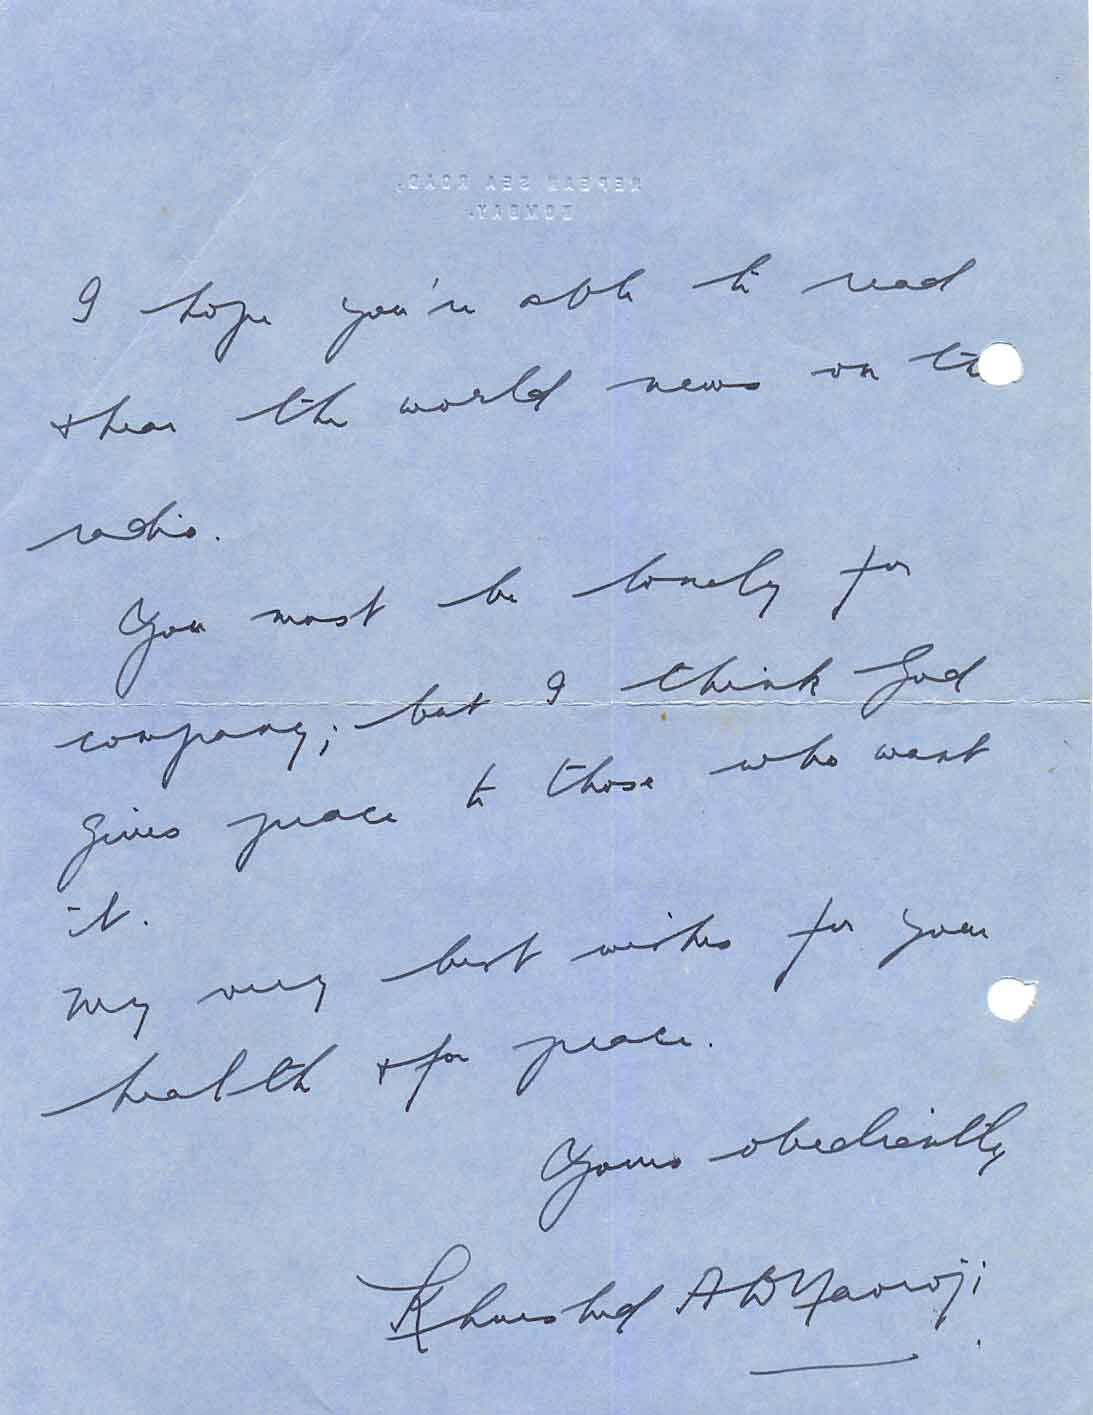 NEPEAN SEA ROAD,
BOMBAY.
I hope you're able to read
& hear the world news on the
radio.
You must be lonely for
company; but I think God
gives peace to those who want
it.
My very best wishes for your
health & for peace.
Yours obediently
Khurshed A D Naoroji